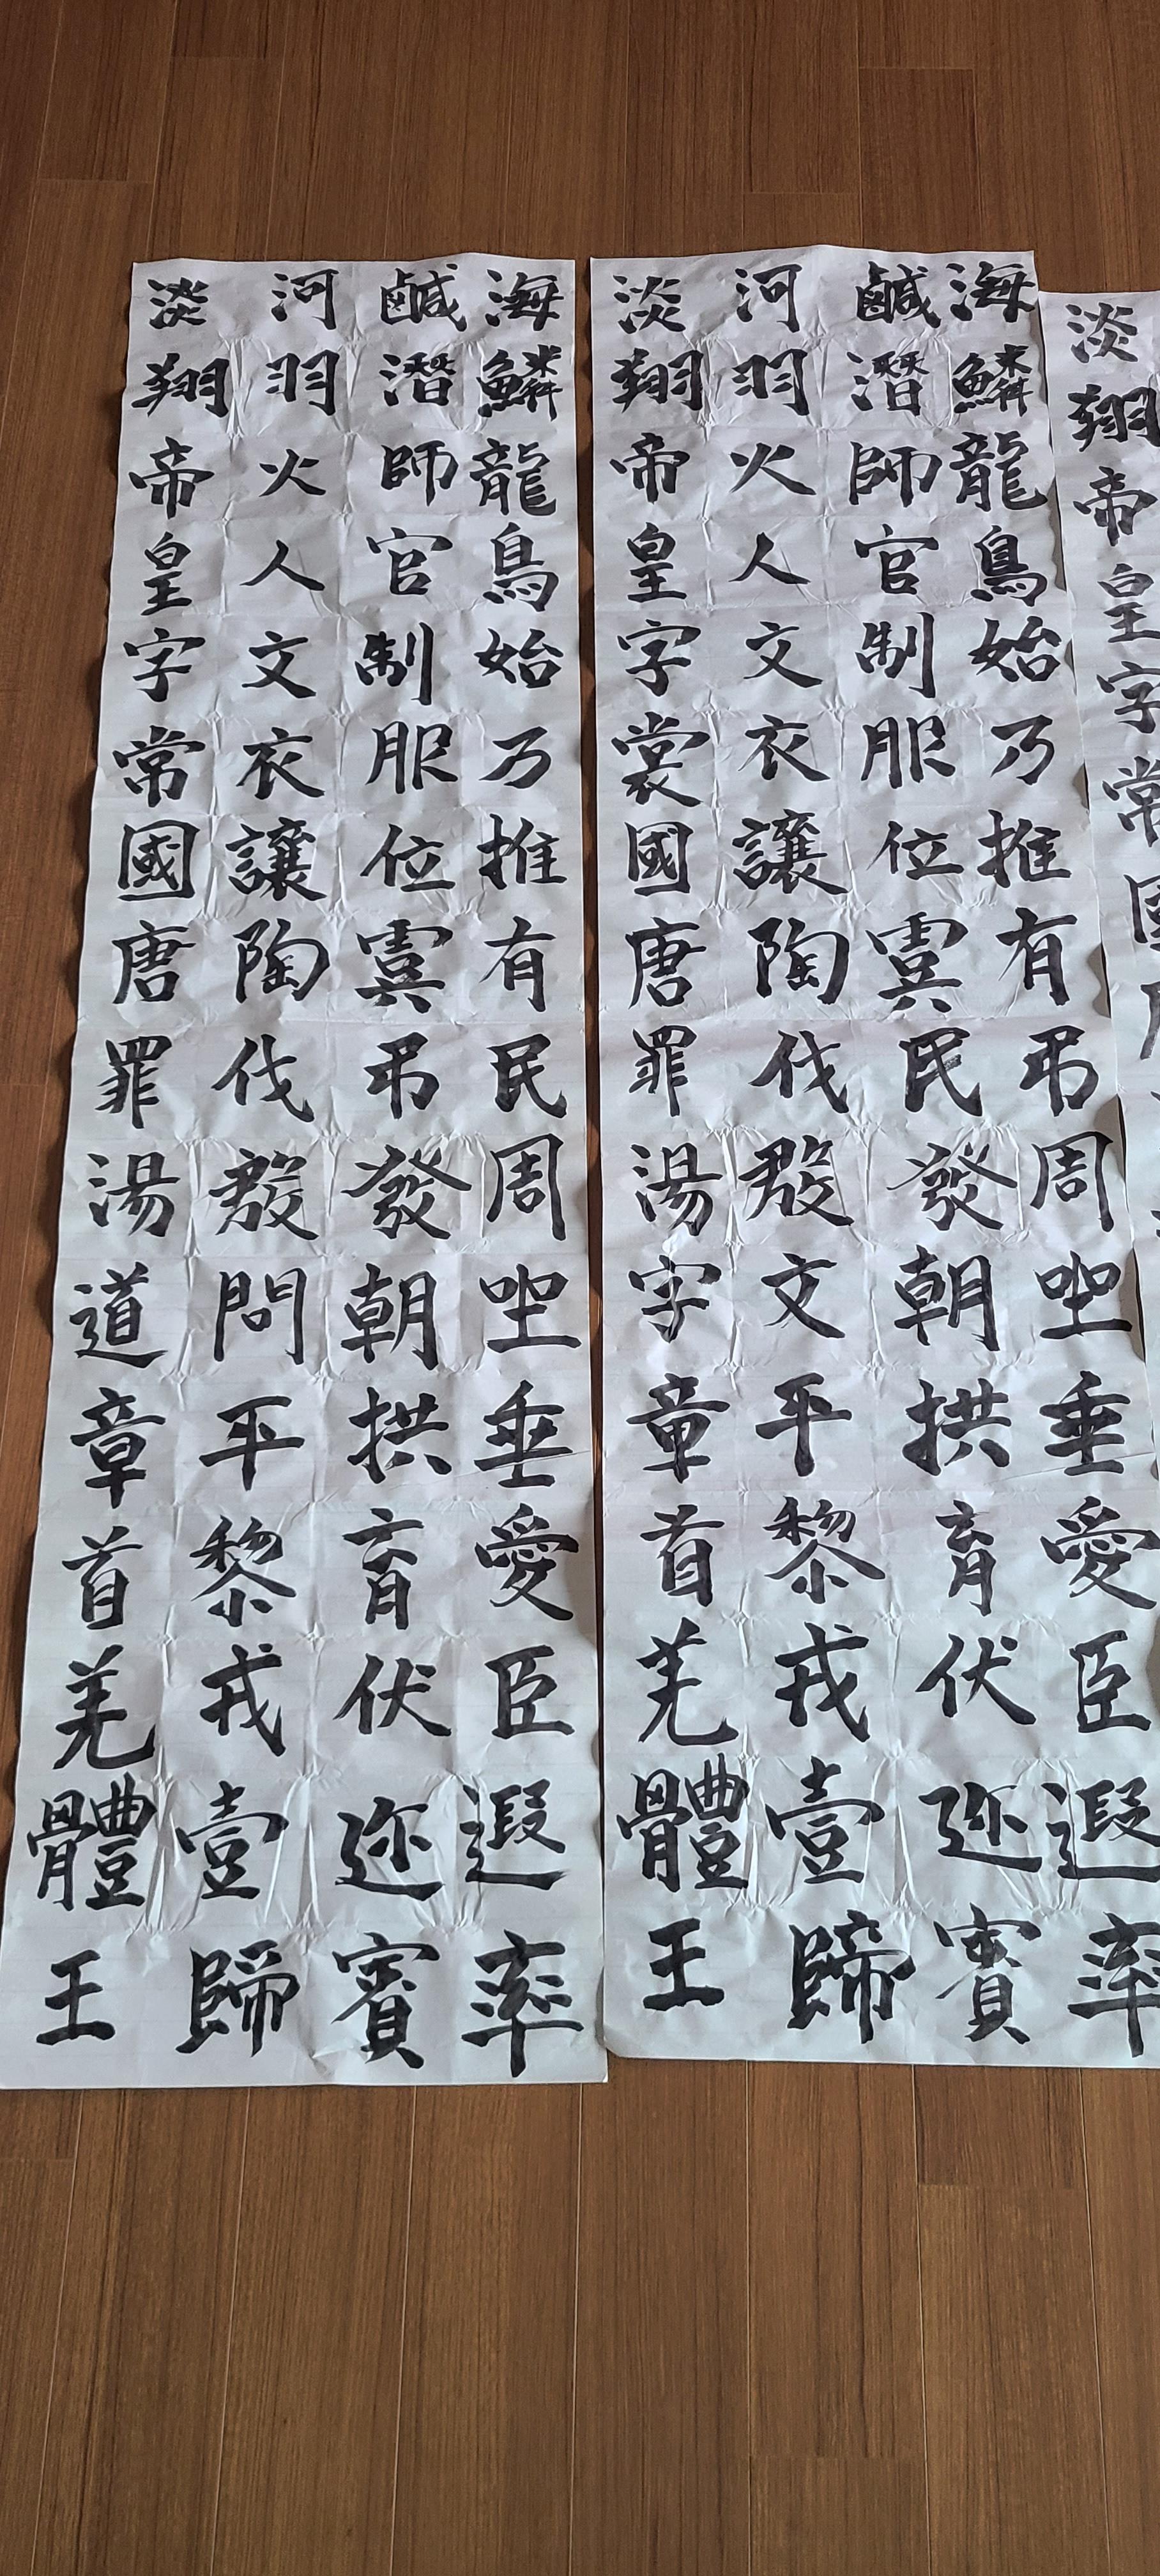 淡
翔
帝
皇
字
常
海鹹河淡
鱗潛羽翔
龍師火帝
鳥官人皇
始制文字
乃服衣裳
推位讓國
有虞陶唐
弔民伐罪
周發殷湯
坐朝文字
垂拱平章
愛育黎首
臣伏戎羌
遐迩壹體
率賓歸王
海鹹河淡
鱗潛羽翔
龍師火帝
鳥官人皇
始制文字
乃服衣常
推位讓國
有虞陶唐
民弔伐罪
周發殷湯
坐朝問道
垂拱平章
愛育黎首
臣伏戎羌
遐迩壹體
率賓歸王